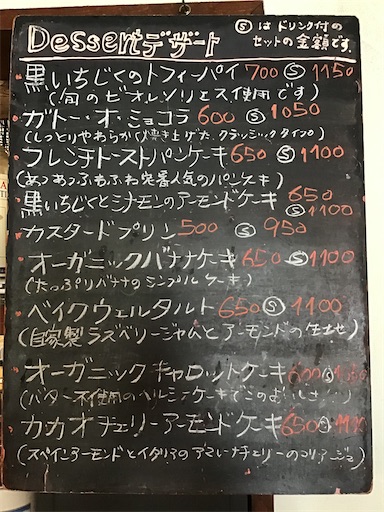 Dessert デザート
Ⓢ はドリンク付の
セットの金額です。
黒いちじくのトフィーパイ 700 Ⓢ 1150
(旬のビオレソリエス使用です)
ガトー・オ・ショコラ 600 Ⓢ 1050
(しっとりやわらかく焼き上げた クラッシックタイプ)
フレンチトーストパンケーキ 650 Ⓢ 1100
(あつあつふわふわ定番人気のパンケーキ)
黒いちじくとシナモンのアーモンドケーキ 650
Ⓢ 1100
カスタードプリン 500 Ⓢ 950
オーガニックバナナケーキ 650 Ⓢ 1100
(たっぷりバナナのシンプルケーキ)
ベイクウェルタルト 650 Ⓢ 1100
(自家製ラズベリージャムとアーモンドの生地)
オーガニックキャロットケーキ 600 Ⓢ
(バター不使用のヘルシーケーキでこのおいしさ
カカオチェリーアーモンドケーキ 650 Ⓢ 1100
(スペインアーモンドとイタリアのアマレーナチェリーのマリアージュ)